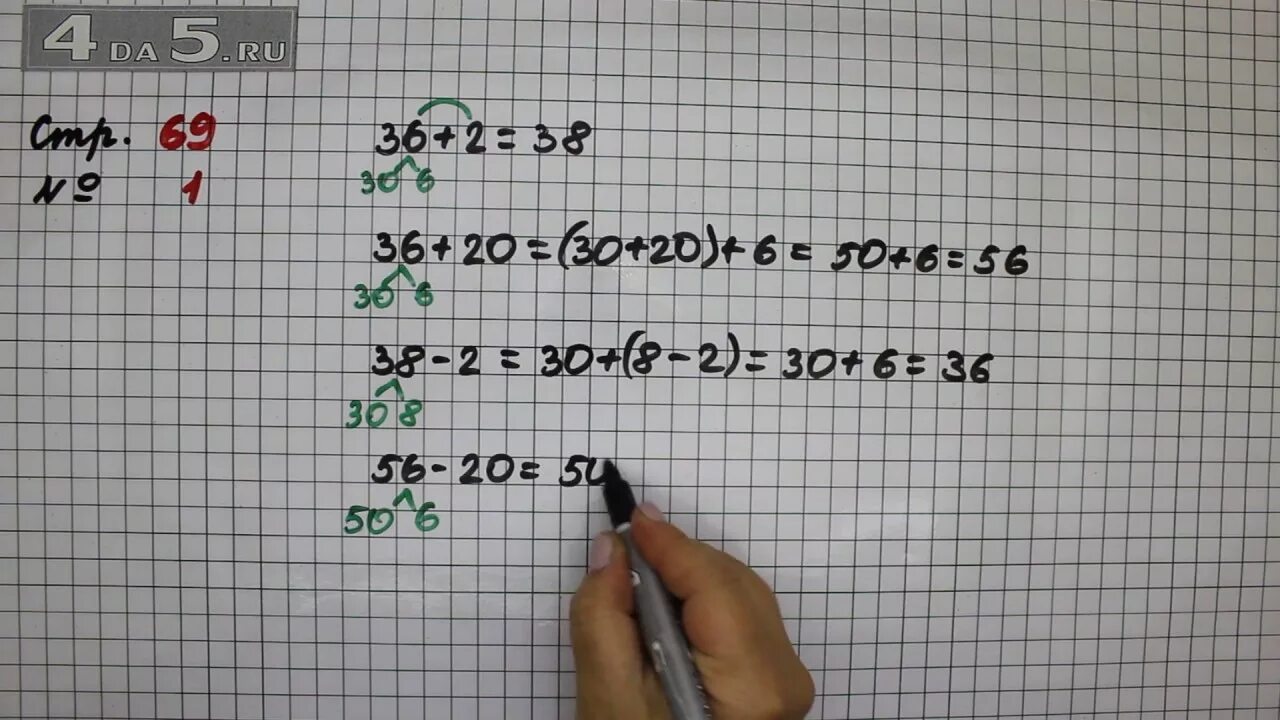 4DA5.RU
Стр. 69
№ 1
36+2=38
30 6
36+20=(30+20)+6=50+6=56
30 6
38-2=30+(8-2)=30+6=36
30 8
56-20=50
50 6